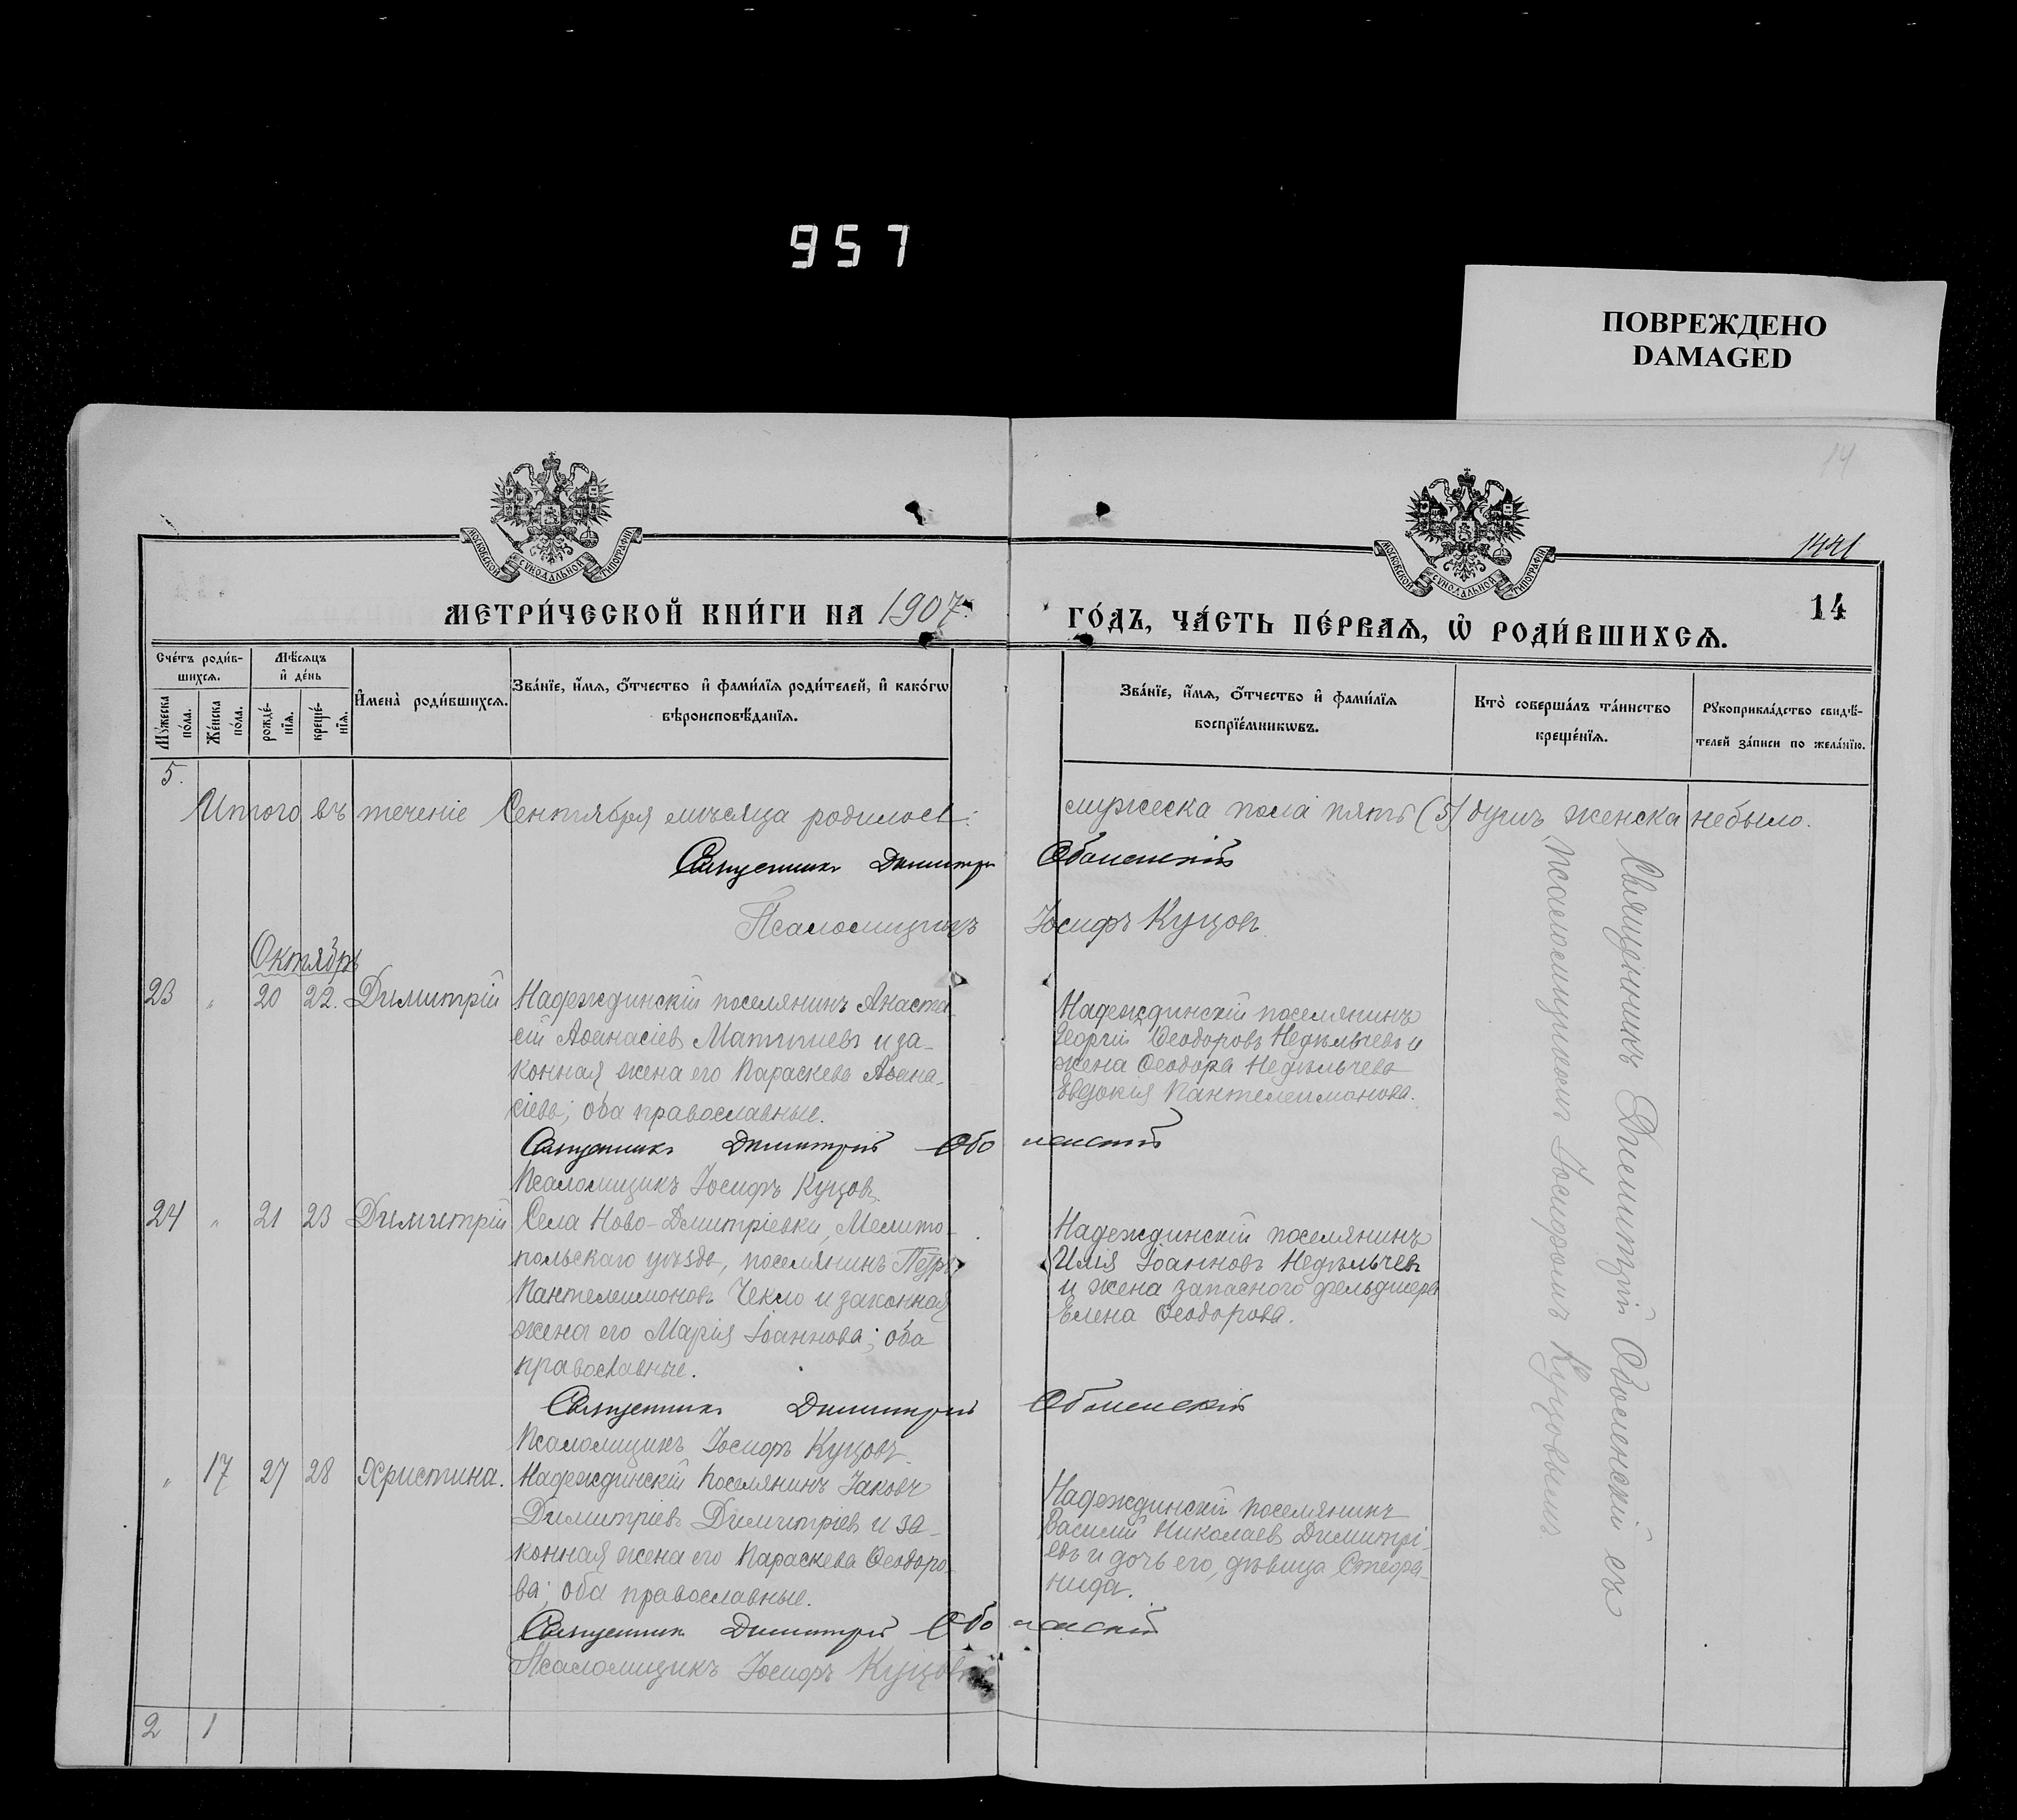 957
ПОВРЕЖДЕНО
DAMAGED
14
1441
МОСКОВСКОЙ СѴНОДАЛЬНОЙ ТИПОГРАФІИ
МОСКОВСКОЙ СѴНОДАЛЬНОЙ ТИПОГРАФІИ
МЕТРИ́ЧЕСКОЙ КНИ́ГИ НА 1907 ГО́ДЪ, ЧА́СТЬ ПЕ́РВАѦ, Ѽ РОДИ́ВШИХСѦ.
14
Сче́тъ роди́в-
шихсѧ.
Мꙋ́жеска
по́ла.
Же́нска
по́ла.
Мѣ́сѧцъ
и҆ де́нь
рожде́-
нїѧ.
креще́-
нїѧ.
И҆мена̀ роди́вшихсѧ.
Зва́нїе, и҆́мѧ, ѻ҆́тчество и҆ фами́лїѧ роди́телей, и҆ како́гѡ
вѣроисповѣ́данїѧ.
Зва́нїе, и҆́мѧ, ѻ҆́тчество и҆ фами́лїѧ
воспрїе́мникѡвъ.
Кто̀ соверша́лъ та́инство
креще́нїѧ.
Рꙋкоприкла́дство свидѣ́-
телей за́писи по жела́нїю.
5.
Итого въ теченіе Сентября мѣсяца родилось: мужеска пола пять (5) душъ женска небыло.
Священникъ Димитрій Оболенскій
Псаломщикъ Іосифъ Куцовъ
Октябрь
23 " 20 22. Димитрій
Надеждинскій поселянинъ Анаста-
сій Аѳанасіевъ Матишевъ и за-
конная жена его Параскева Аѳана-
сіева; оба православные.
Надеждинскій поселянинъ
Георгій Ѳеодоровъ Недѣльчевъ и
жена Ѳеодора Недѣльчева
Евдокия Пантелеимонова.
Священникъ Димитрій Оболенскій
Псаломщикъ Іосифъ Куцовъ
24 " 21 23 Димитрій
Села Ново-Дмитріевки, Мелито-
польскаго уѣзда, поселянинъ Петръ
Пантелеимоновъ Чекло и законная
жена его Марія Іоаннова; оба
православные.
Надеждинскій поселянинъ
Илія Іоанновъ Недѣльчевъ
и жена запасного фельдшера
Елена Ѳеодорова.
Священникъ Димитрій Оболенскій
Псаломщикъ Іосифъ Куцовъ
" 17 27 28 Христина.
Надеждинскій поселянинъ Іаковъ
Димитріевъ Димитріевъ и за-
конная жена его Параскева Ѳеодоро-
ва; оба православные.
Надеждинскій поселянинъ
Василій Николаевъ Димитрі-
евъ и дочь его, дѣвица Стефа-
нида.
Священникъ Димитрій Оболенскій
Псаломщикъ Іосифъ Куцовъ
Священникъ Димитрій Оболенскій съ
псаломщикомъ Іосифомъ Куцовымъ
2 1